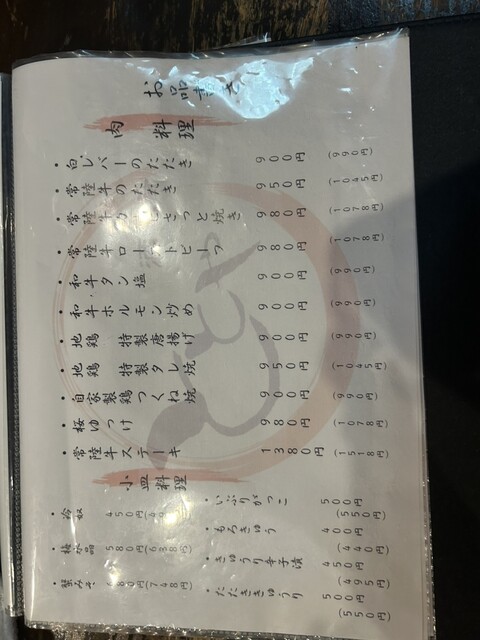 お品書き
肉料理
・白レバーのたたき 900円 (990円)
・常陸牛のたたき 950円 (1045円)
・常陸牛 さっと焼き 980円 (1078円)
・常陸牛ローストビーフ 980円 (1078円)
・和牛タン塩 900円 (990円)
・和牛ホルモン炒め 900円 (990円)
・地鶏 特製唐揚げ 900円 (990円)
・地鶏 特製タレ焼 950円 (1045円)
・自家製鶏つくね焼 900円 (990円)
・桜ゆっけ 980円 (1078円)
・常陸牛ステーキ 1380円 (1518円)
小皿料理
・冷奴 450円
・梅水晶 580円(638円)
・蟹みそ 680円(748円)
・いぶりがっこ 500円 (550円)
・もろきゅう 400円 (440円)
・きゅうり辛子漬 450円 (495円)
・たたききゅうり 500円 (550円)